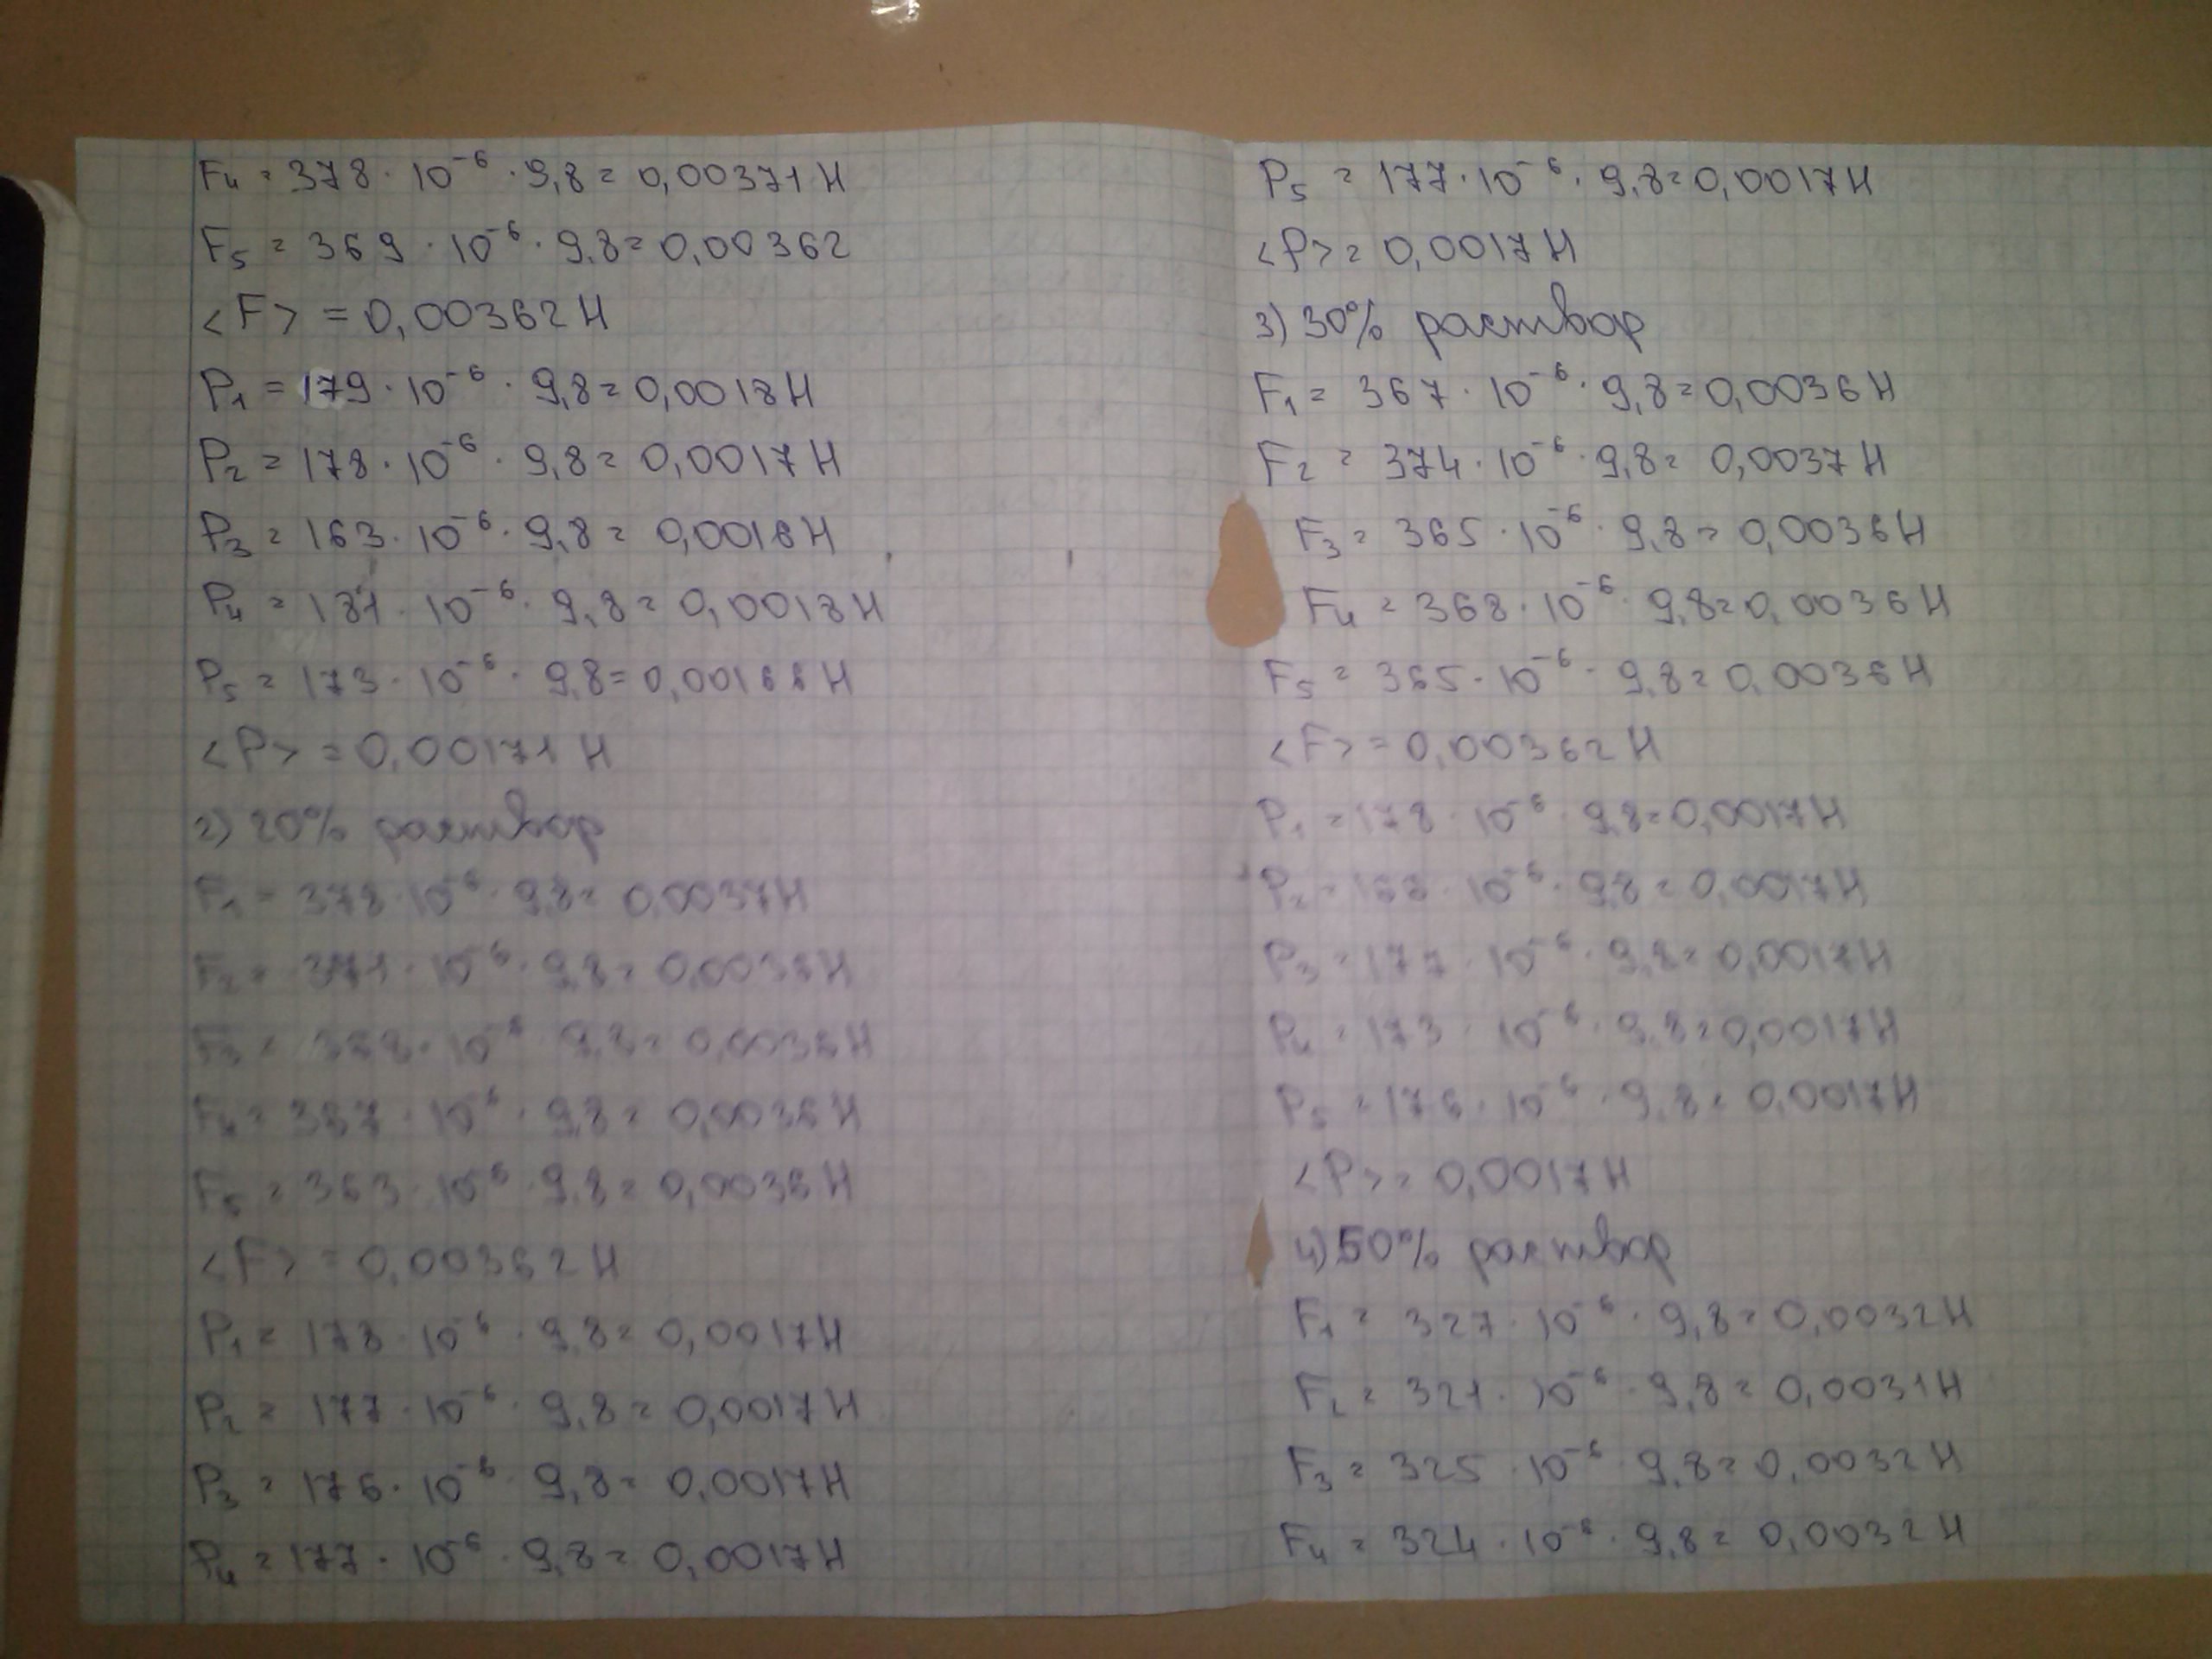 F₄ = 378 · 10⁻⁶ · 9,8 = 0,00371 Н
F₅ = 369 · 10⁻⁶ · 9,8 = 0,00362
<F> = 0,00362 Н
P₁ = 179 · 10⁻⁶ · 9,8 = 0,0018 Н
P₂ = 178 · 10⁻⁶ · 9,8 = 0,0017 Н
P₃ = 163 · 10⁻⁶ · 9,8 = 0,0016 Н
P₄ = 181 · 10⁻⁶ · 9,8 = 0,0018 Н
P₅ = 173 · 10⁻⁶ · 9,8 = 0,00166 Н
<P> = 0,00171 Н
2) 20% раствор
F₁ = 378 · 10⁻⁶ · 9,8 = 0,0037 Н
F₂ = 371 · 10⁻⁶ · 9,8 = 0,0036 Н
F₃ = 368 · 10⁻⁶ 9,8 = 0,0036 Н
F₄ = 367 · 10⁻⁶ · 9,8 = 0,0036 Н
F₅ = 363 · 10⁻⁶ · 9,8 = 0,0036 Н
<F> = 0,00362 Н
P₁ = 178 · 10⁻⁶ · 9,8 = 0,0017 Н
P₂ = 177 · 10⁻⁶ · 9,8 = 0,0017 Н
P₃ = 176 · 10⁻⁶ · 9,8 = 0,0017 Н
P₄ = 177 · 10⁻⁶ · 9,8 = 0,0017 Н
P₅ = 177 · 10⁻⁶ · 9,8 = 0,0017 Н
<P> = 0,0017 Н
3) 30% раствор
F₁ = 367 · 10⁻⁶ · 9,8 = 0,0036 Н
F₂ = 374 · 10⁻⁶ · 9,8 = 0,0037 Н
F₃ = 365 · 10⁻⁶ · 9,8 = 0,0036 Н
F₄ = 368 · 10⁻⁶ · 9,8 = 0,0036 Н
F₅ = 365 · 10⁻⁶ · 9,8 = 0,0036 Н
<F> = 0,00362 Н
P₁ = 178 · 10⁻⁶ · 9,8 = 0,0017 Н
P₂ = 10⁻⁶ · 9,8 = 0,0017 Н
P₃ = 177 · 10⁻⁶ · 9,8 = 0,0017 Н
P₄ = 173 · 10⁻⁶ · 9,8 = 0,0017 Н
P₅ = 176 · 10⁻⁶ · 9,8 = 0,0017 Н
<P> = 0,0017 Н
4) 50% раствор
F₁ = 327 · 10⁻⁶ · 9,8 = 0,0032 Н
F₂ = 321 · 10⁻⁶ · 9,8 = 0,0031 Н
F₃ = 325 · 10⁻⁶ · 9,8 = 0,0032 Н
F₄ = 324 · 10⁻⁶ · 9,8 = 0,0032 Н